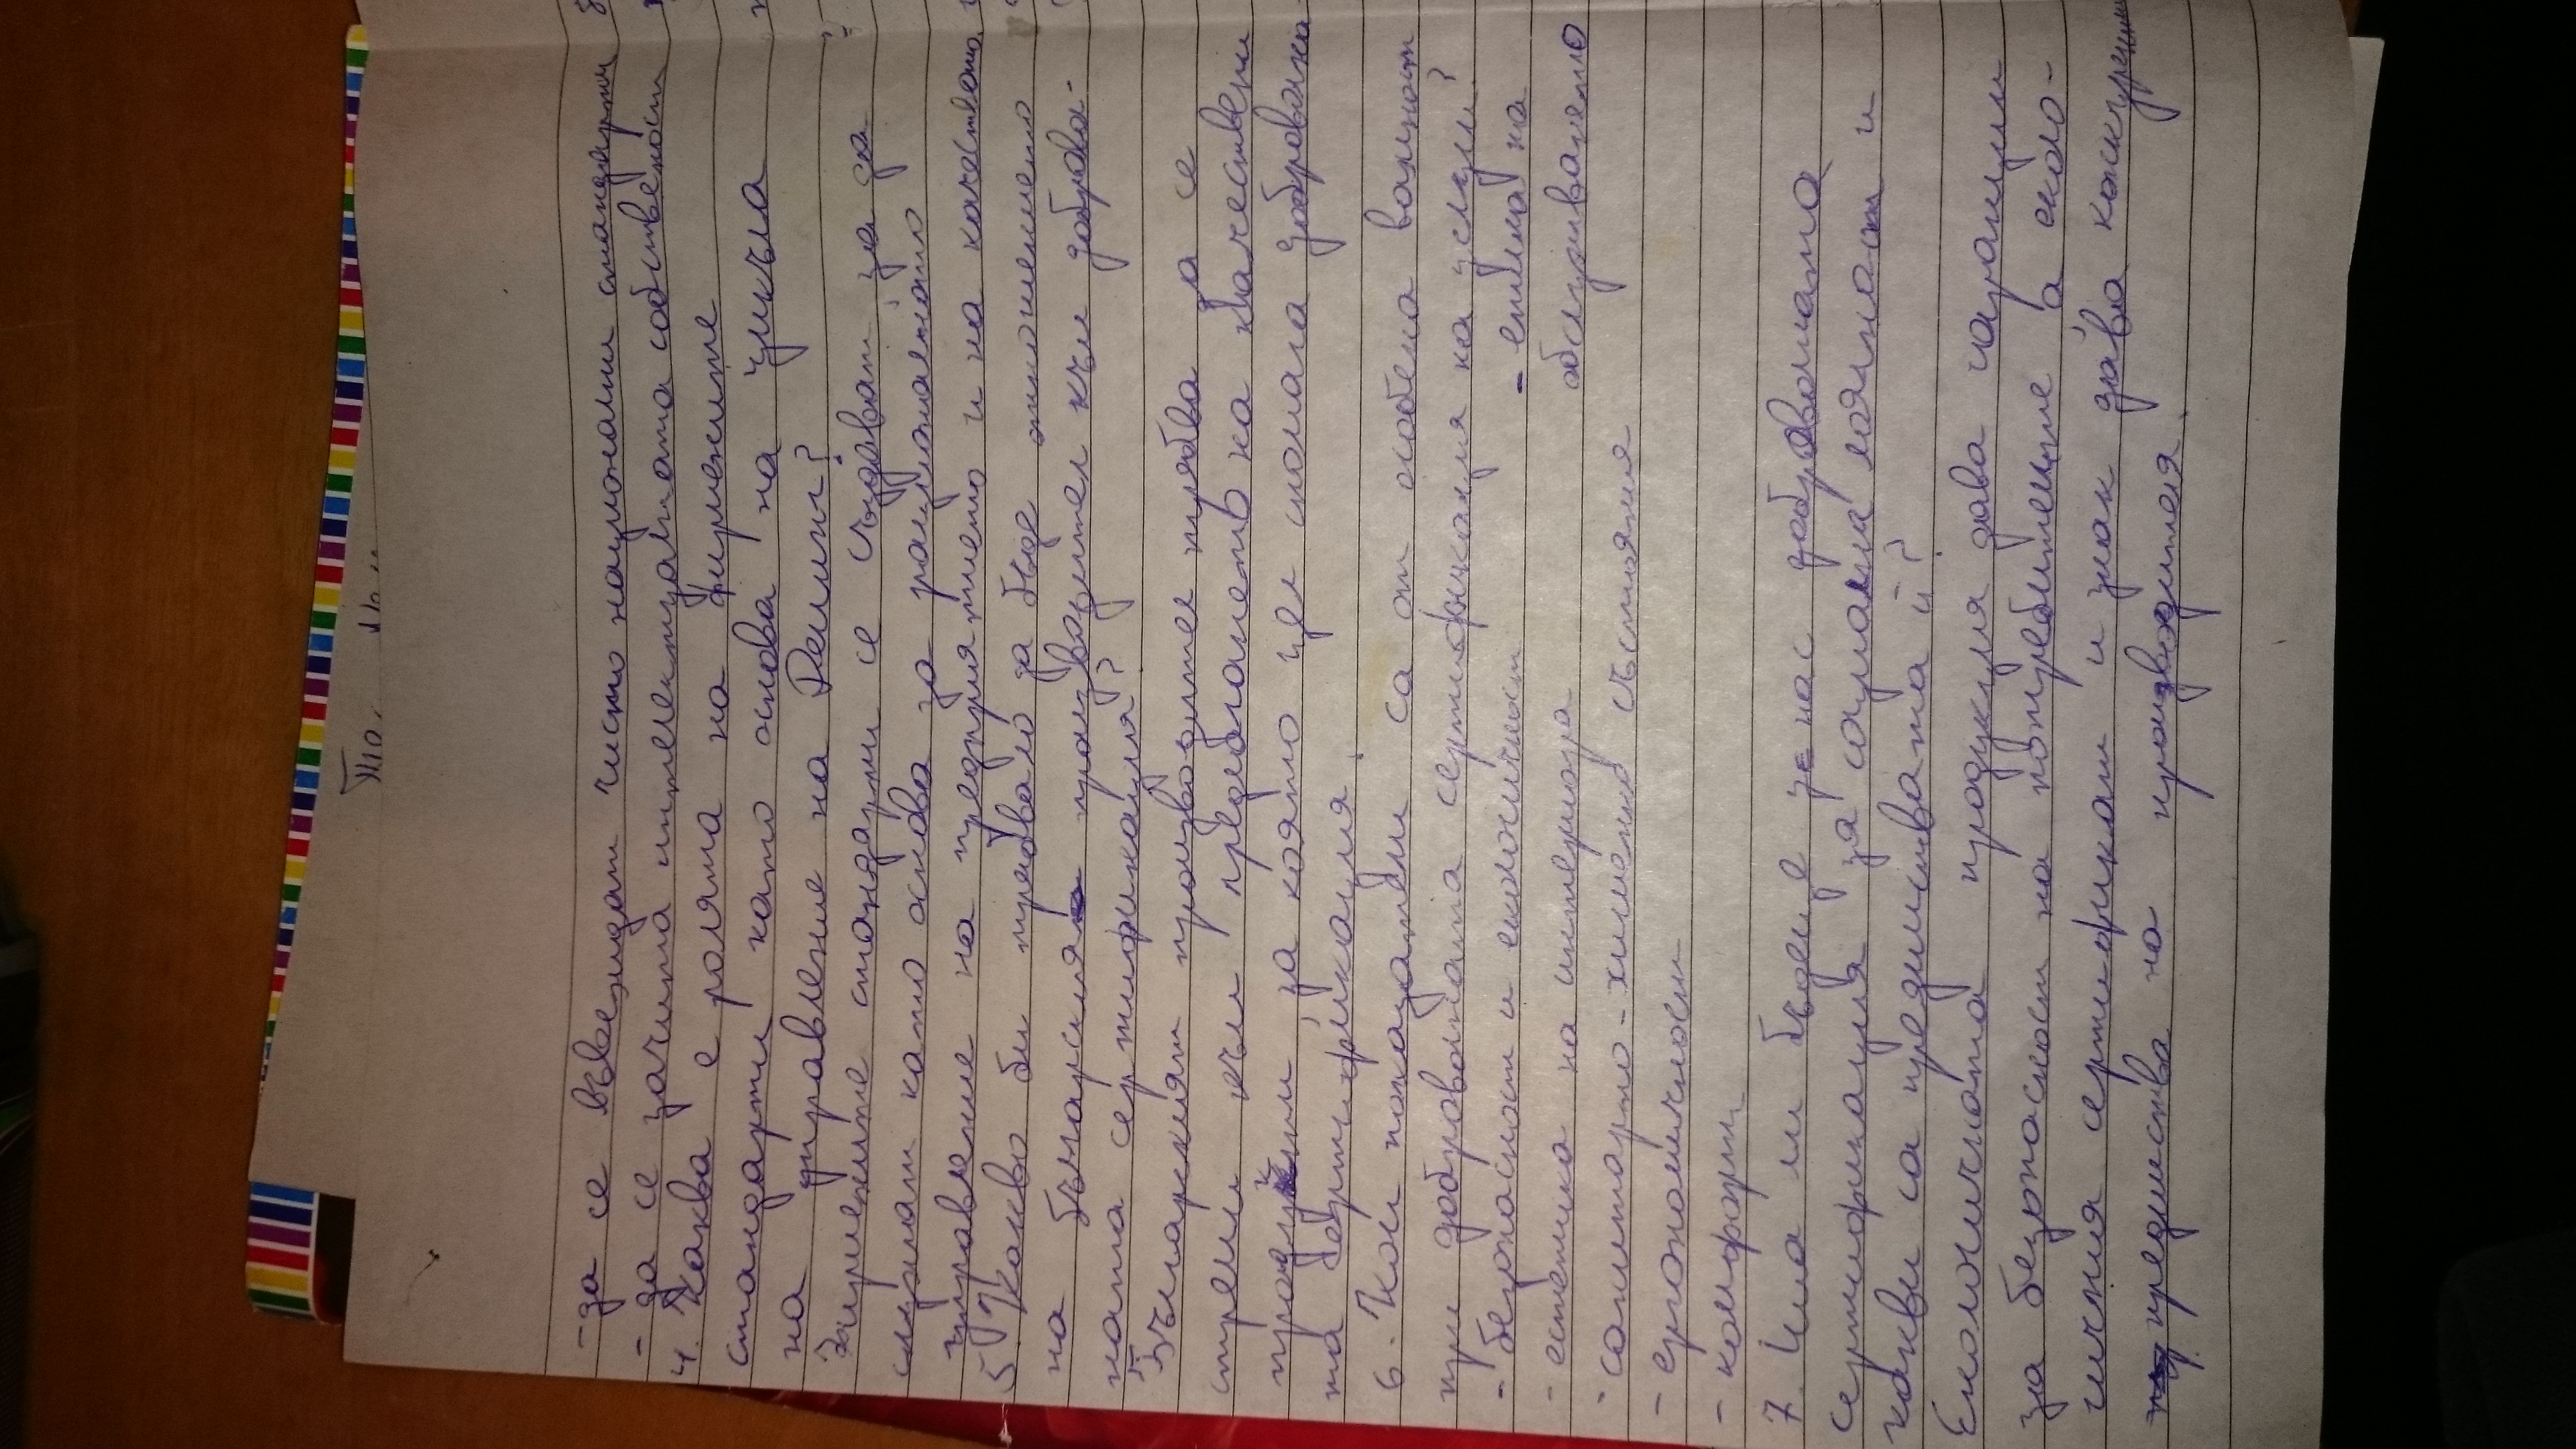 -да се въвеждат чисто национални стандарти
- да се зачита интелектуалната собственост
4. Каква е ролята на фирмените
стандарти като основа на цикъла
на управление на Деминг?
Фирмените стандарти се създават, за да
служат като основа за рационалното
управление на предприятието и на качеството.
5. Какво би трябвало да бъде отношението
на българския производител към доброво-
ната сертификация?
Българският производител трябва да се
стреми към предлагането на качествени
продукти, за която цел спомага доброволна
та сертификация.
6. Кои показатели са от особена важност
при доброволната сертификация на услуги?
- безопасност и екологичност - етика на
- естетика на интериора обслужването
- санитарно-хигиенно състояния
- ергономичност
- комфорт
7. Има ли бъдеще у нас доброволната
сертификация за социална поемност и
какви са предимствата ѝ?
Екологичната продукция дава гаранции
за безопасност на потребителите, а еколо-
гичния сертификат и знак дава конкурентни
предимства на производителя.